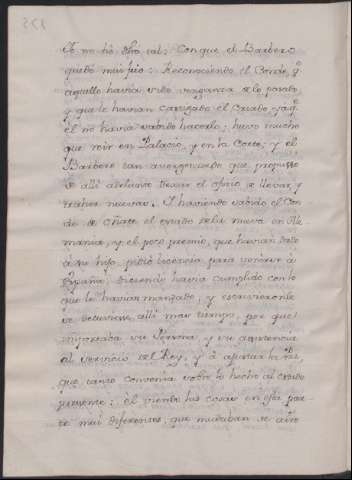 Yo no hé dho tal: Con que el Barbero
quedó mui frio: Reconociendo el Conde, q.
aquello havia sido venganza de lo pasado,
y que le havian castigado el Criado, ya q.
el no havia sabido hacerlo; huvo mucho
que reir en Palacio, y en la Corte; y el
Barbero tan avergonzado que propuso
de alli adelante dexar el oficio de llevar, y
traher nuevas. Y haviendo sabido el Con-
de de Oñate el estado de la nueva en Ale-
mania, y el poco premio, que havian dado
à su hijo, pidió licencia para venirse à
España, diciendo havia cumplido con lo
que le havian mandado, y escriviéronle
se detuviese alli mas tiempo, por que
importaba su Persona, y su asistencia
al servicio del Rey, y à ajustar la Paz,
que tanto convenia sobre lo hecho al estado
presente: él viendo las cosas en esta par-
te mui diferentes, que mudaban de aire